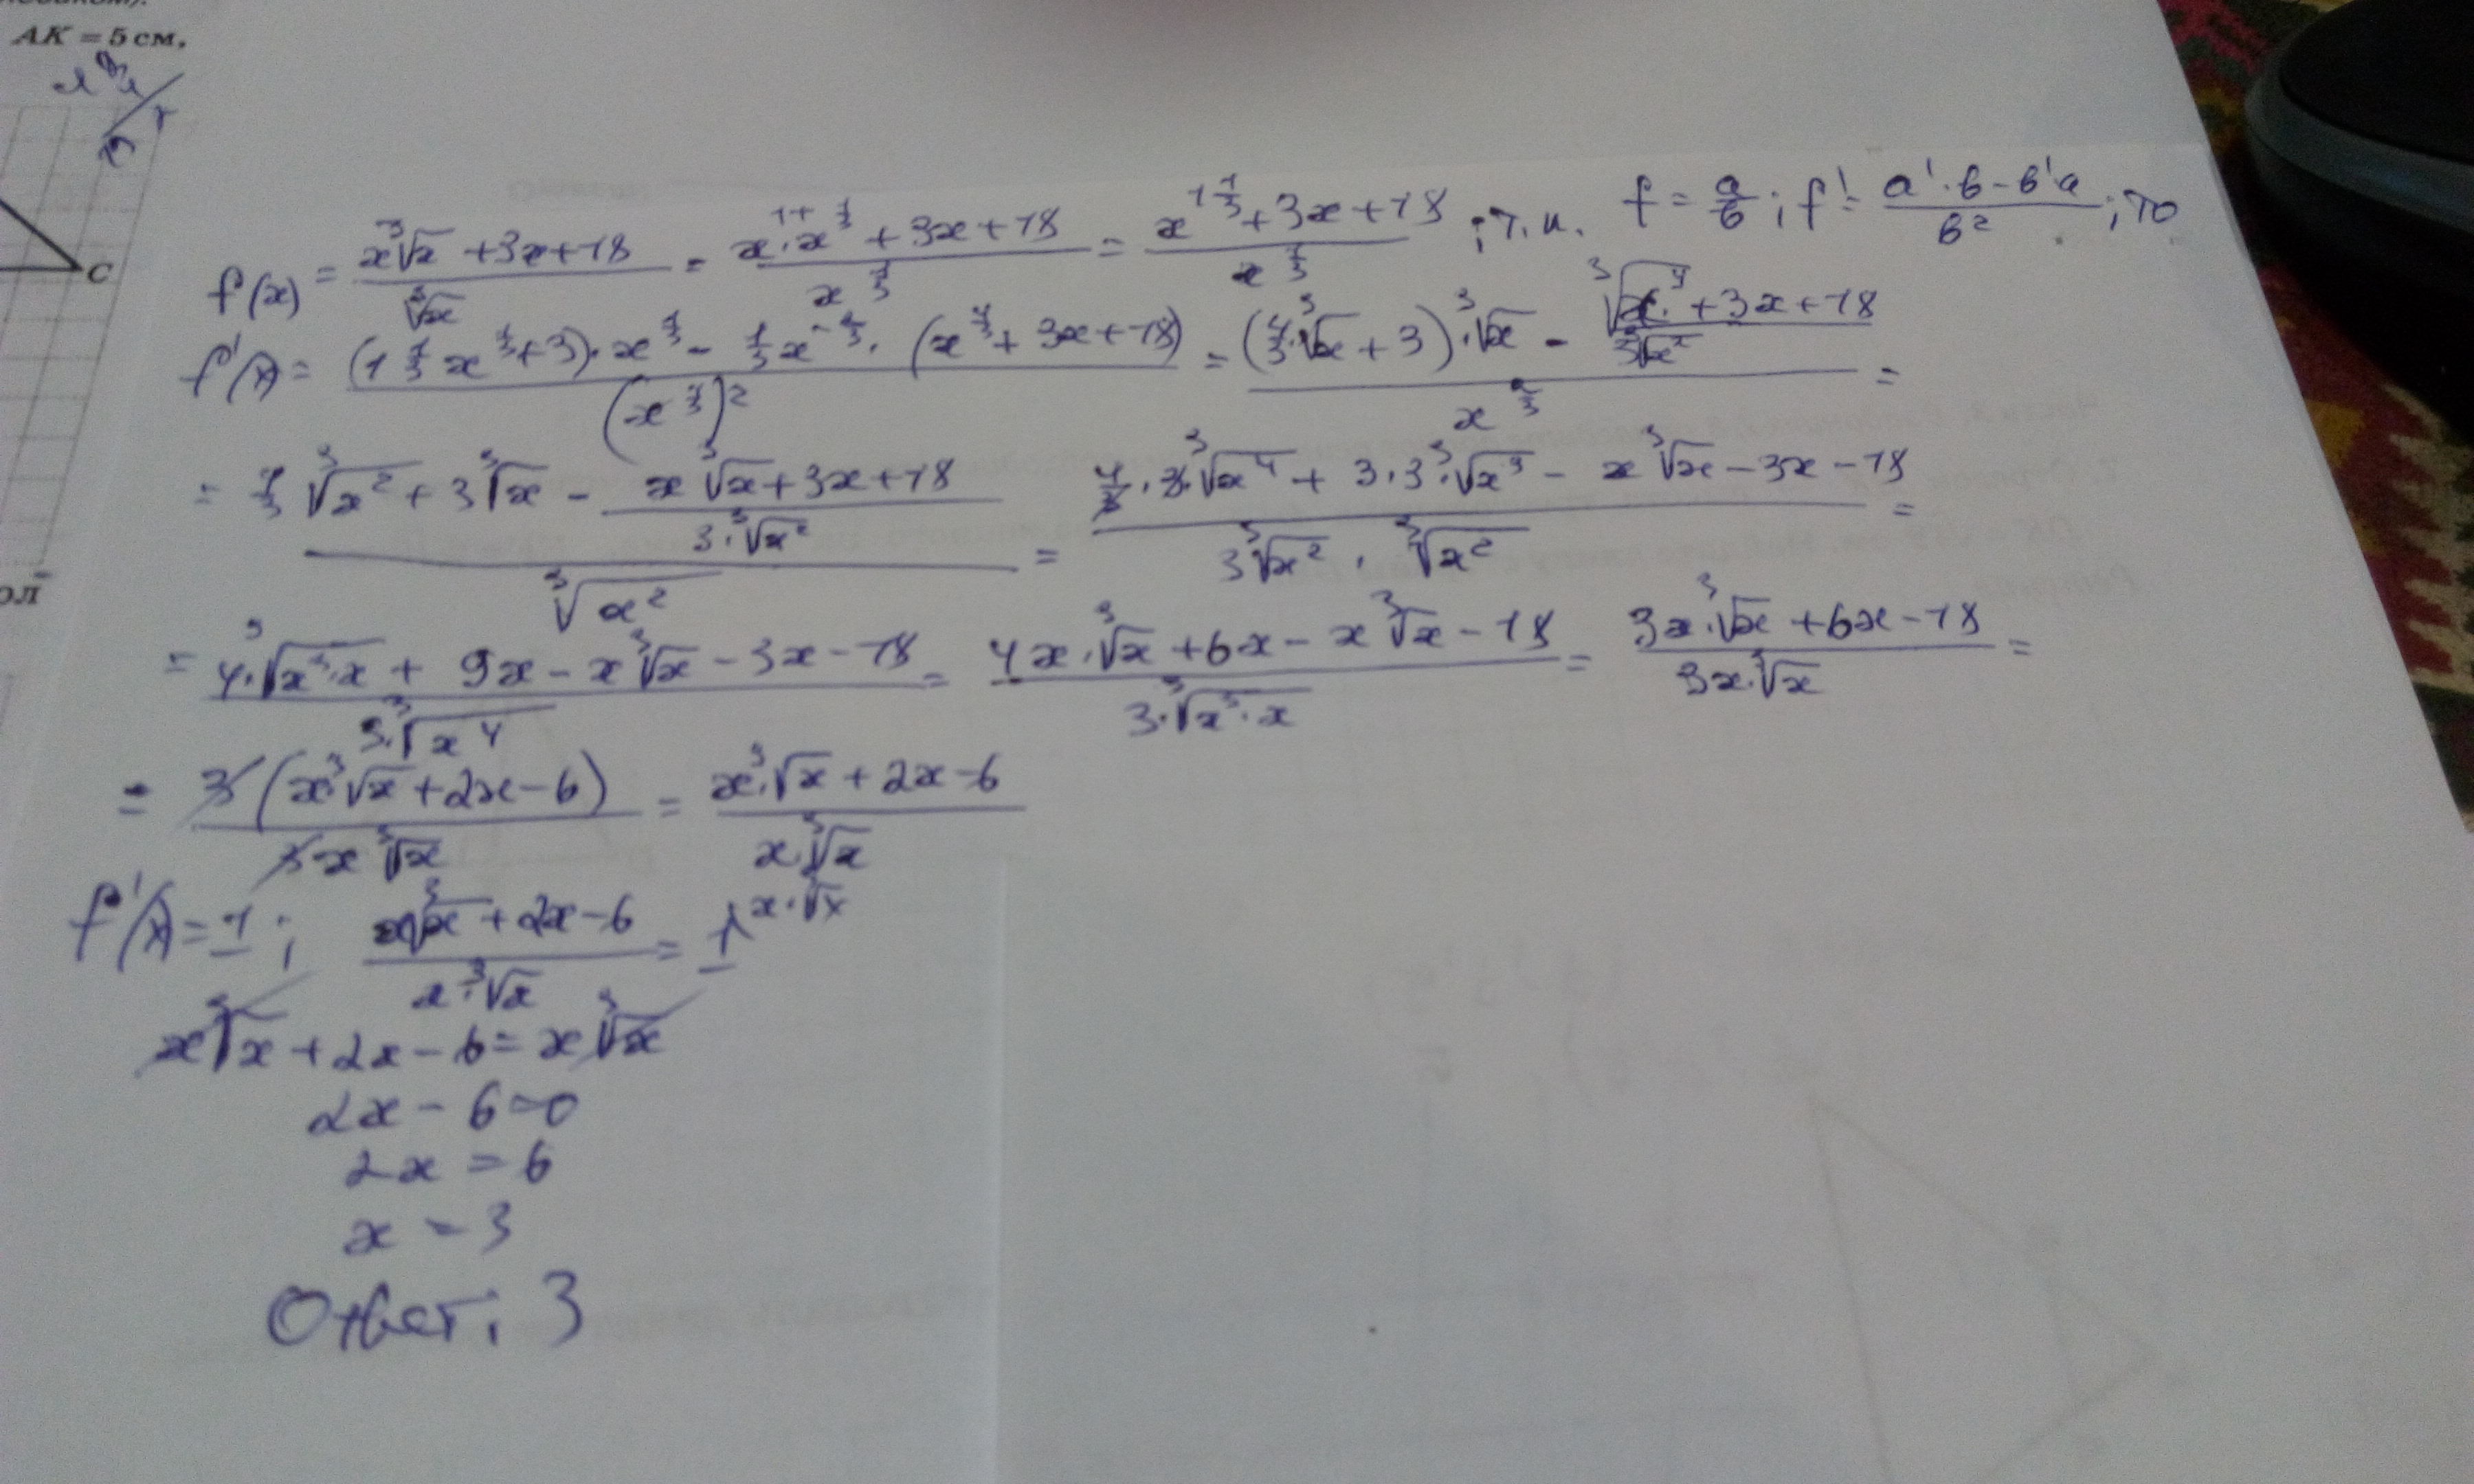 AK = 5 см,
C
f(x) = (x∛x + 3x + 18)/∛x = (x·x^(1/3) + 3x + 18)/x^(1/3) = (x^(1 1/3) + 3x + 18)/x^(1/3) ; т.к. f = a/b ; f' = (a'·b − b'a)/b² ; то
f'(x) = ((1 1/3 x^(1/3) + 3)·x^(1/3) − 1/3 x^(-2/3)·(x^(4/3) + 3x + 18))/(x^(1/3))² = ((4/3·∛x + 3)·∛x − (∛x⁴ + 3x + 18)/(3∛x²))/x^(2/3) =
= (4/3 ∛x² + 3∛x − (x∛x + 3x + 18)/(3·∛x²))/∛x² = (4/3·3·∛x⁴ + 3·3·∛x³ − x∛x − 3x − 18)/(3∛x²·∛x²) =
= (4·∛(x³·x) + 9x − x∛x − 3x − 18)/(3·∛x⁴) = (4x·∛x + 6x − x∛x − 18)/(3·∛(x³·x)) = (3x·∛x + 6x − 18)/(3x·∛x) =
= 3(x·∛x + 2x − 6)/(3x∛x) = (x·∛x + 2x − 6)/(x·∛x)
f'(x) = 1 ; (x∛x + 2x − 6)/(x·∛x) = 1 x·∛x
x∛x + 2x − 6 = x∛x
2x − 6 = 0
2x = 6
x = 3
Ответ: 3